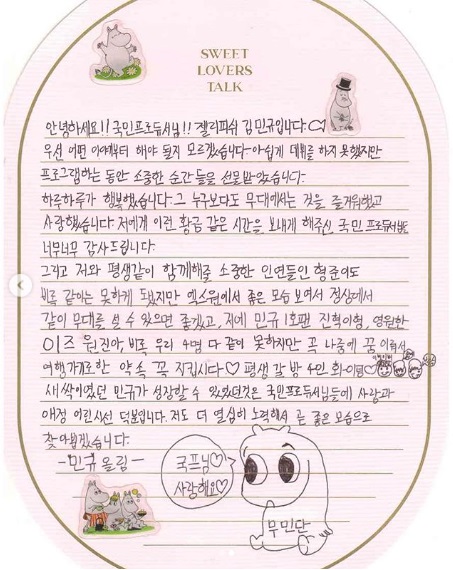 SWEET
LOVERS
TALK
안녕하세요!! 국민프로듀서님!! 젤리피쉬 김민규입니다.♡
우선 어떤 이야기부터 해야 될지 모르겠습니다. 아쉽게 데뷔를 하지 못했지만
프로그램하는 동안 소중한 순간들을 선물받았습니다.
하루하루가 행복했습니다. 그 누구보다도 무대에서는 것을 즐거워했고
사랑했습니다. 저에게 이런 황금 같은 시간을 보내게 해주신 국민 프로듀서님들
너무너무 감사드립니다.
그리고 저와 평생같이 함께해줄 소중한 인연들인 형준이도
비록 같이는 못하게 됐지만 엑스원에서 좋은 모습 보여서 정상에서
같이 무대를 설 수 있으면 좋겠고, 저에 민규 1호팬 진혁이형, 영원한
이즈 원진아, 비록 우리 4명 다 같이 못하지만 꼭 나중에 꿈 이뤄서
여행가기로한 약속 꼭 지킵시다♡ 평생 갈 밤 4인 화이팅♡
새싹이었던 민규가 성장할 수 있었던것은 국민프로듀서님들에 사랑과
애정 어린시선 덕분입니다. 저도 더 열심히 노력해서 곧 좋은 모습으로
찾아뵙겠습니다.
-민규 올림-
국프님♡
사랑해요♡
무민단